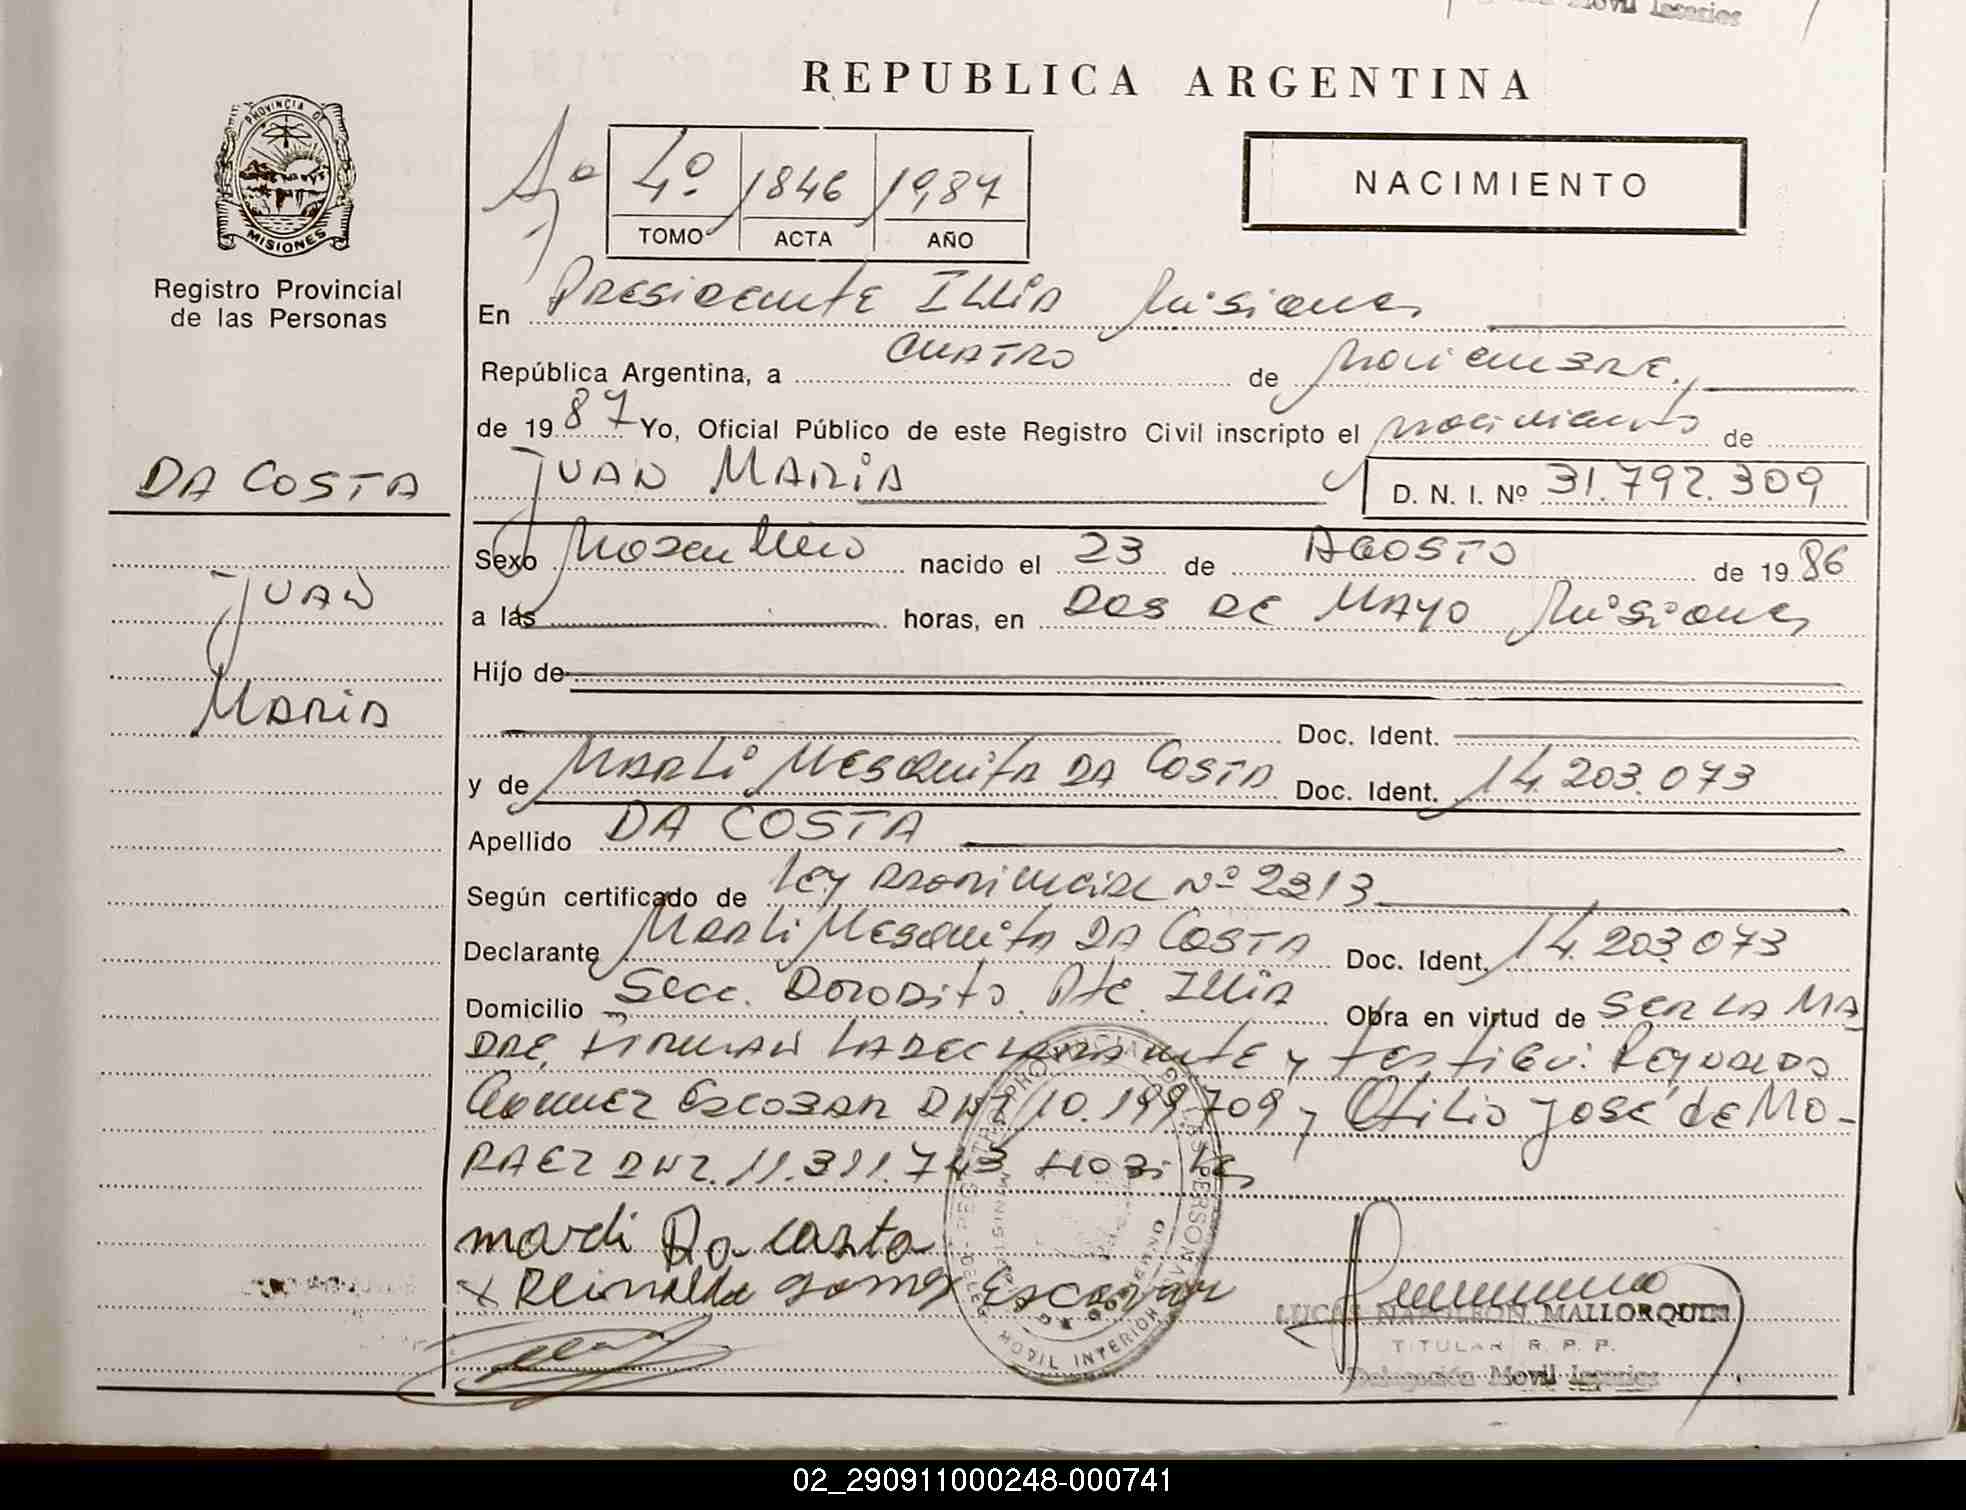 REPUBLICA ARGENTINA
PROVINCIA DE
MISIONES
Registro Provincial
de las Personas
4º 1846 1987
TOMO ACTA AÑO
NACIMIENTO
En Presidente Illia Misiones
República Argentina, a cuatro de Noviembre
de 1987 Yo, Oficial Público de este Registro Civil inscripto el nacimiento de
JUAN MARIA D. N. I. Nº 31.792.309
DA COSTA
JUAN
MARIA
Sexo Masculino nacido el 23 de AGOSTO de 1986
a las horas, en DOS DE MAYO Misiones
Hijo de
Doc. Ident.
y de Marli Mesquita DA COSTA Doc. Ident. 14.203.073
Apellido DA COSTA
Según certificado de Ley provincial Nº 2313
Declarante Marli Mesquita DA COSTA Doc. Ident. 14.203.073
Domicilio Secc. Pte. Illia Obra en virtud de SER LA MA
DRE, firman la declarante y testigos: Reynaldo
Gomez Escobar DNI 10.199.709 y Otilio José de MO-
RAEZ DNI. 11.311.743 Hábiles
mardi Da Costa
x Reinaldo gomez Escovar
LUCAS NAPOLEON MALLORQUIN
TITULAR R. P. P.
Delegación Movil Interior
02_290911000248-000741